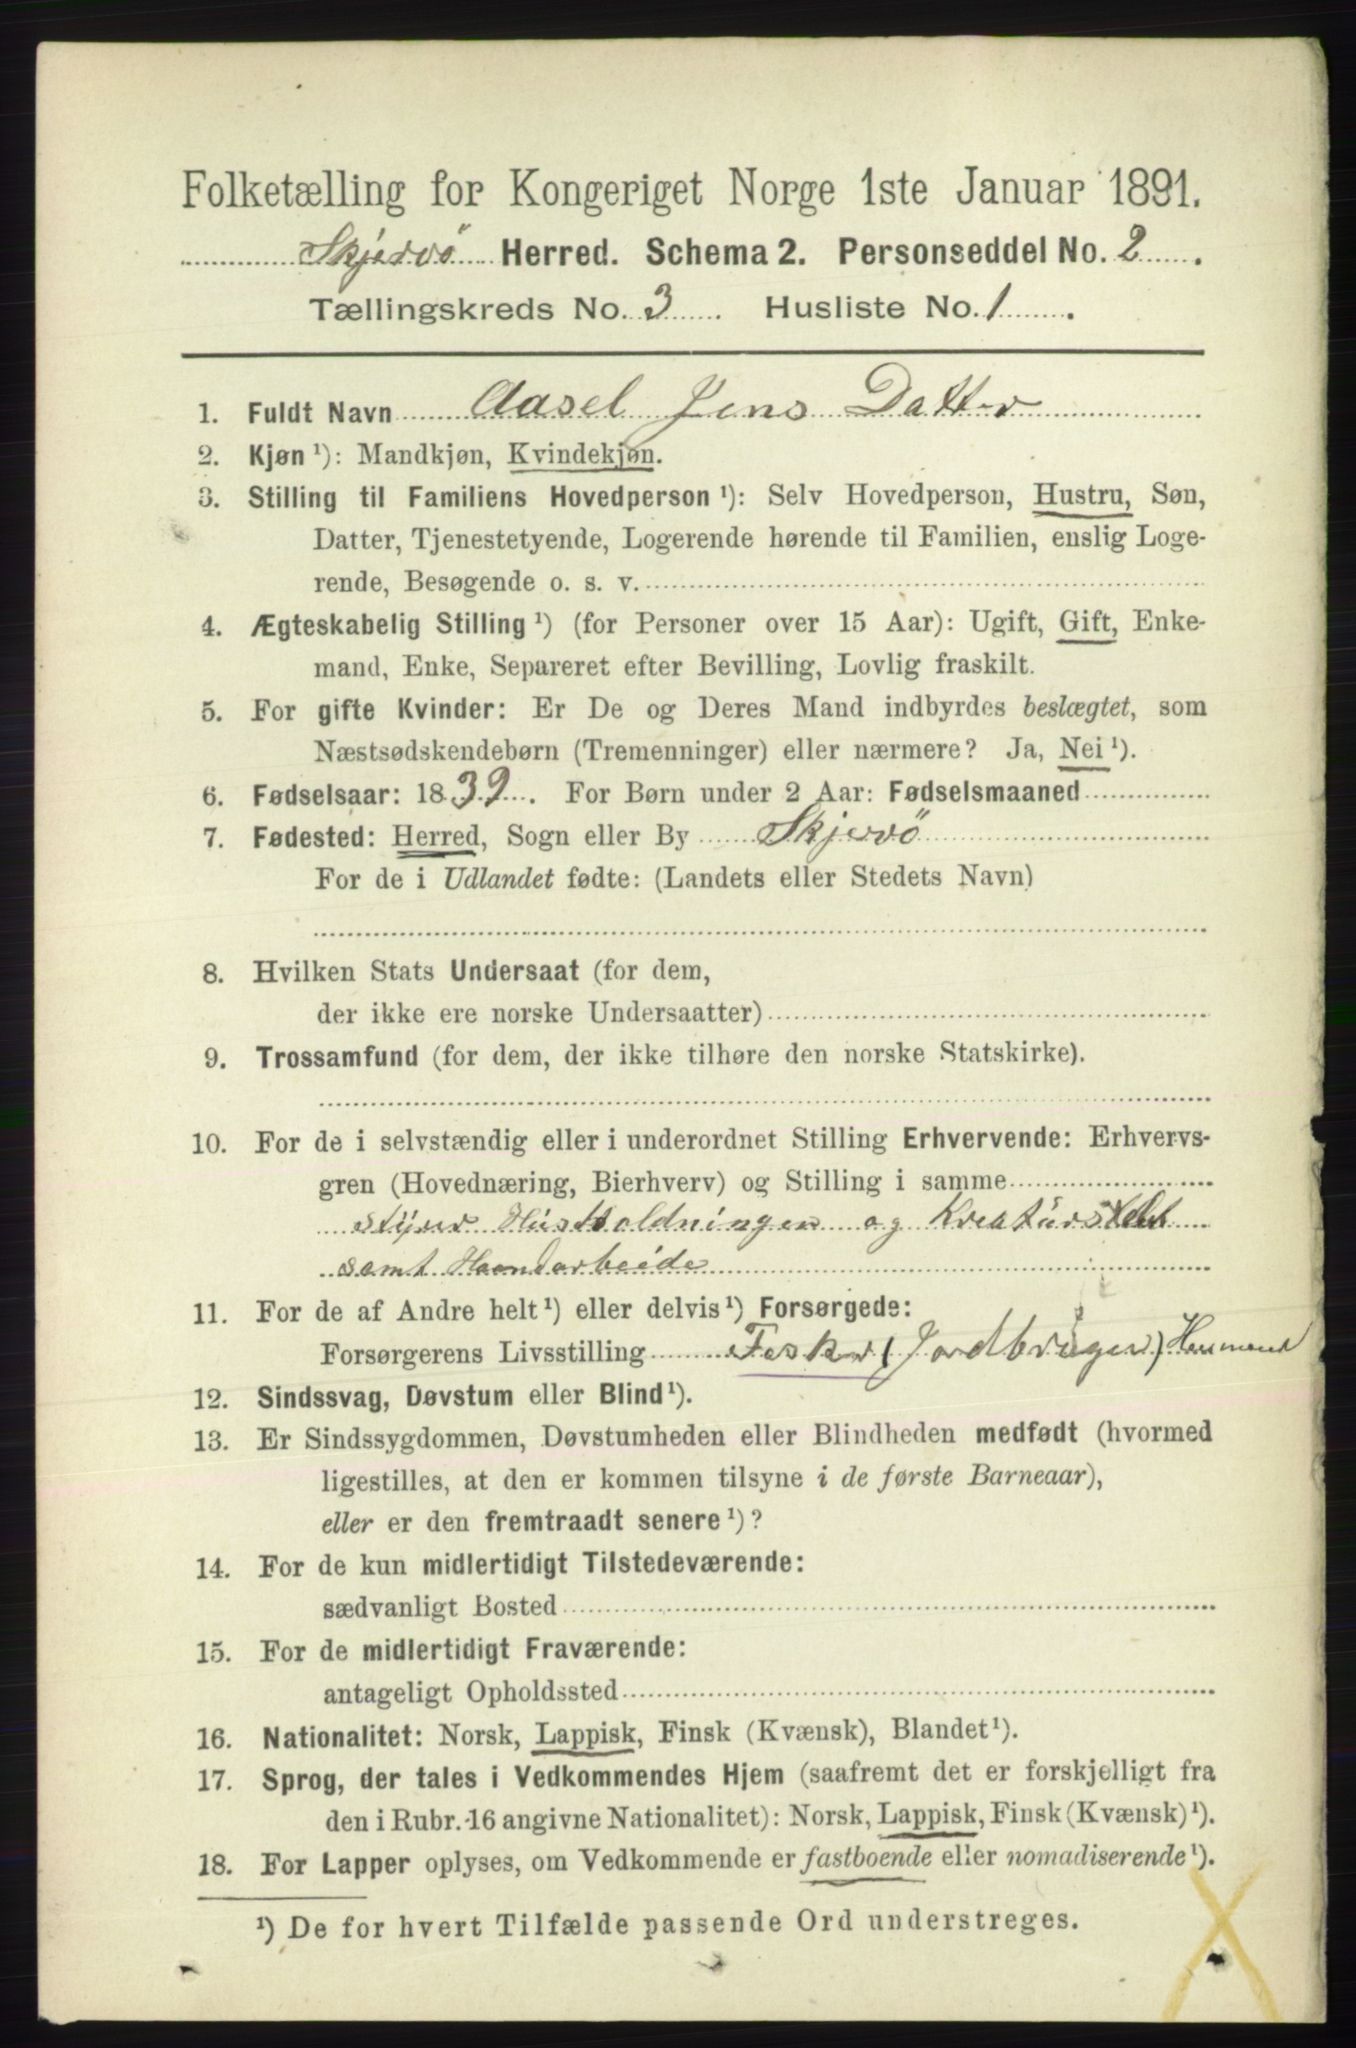 Folketælling for Kongeriget Norge 1ste Januar 1891.
Skjervö Herred. Schema 2. Personseddel No. 2.
Tællingskreds No. 3 Husliste No. 1.
1. Fuldt Navn Aasel Jens Datter
2. Kjøn ¹): Mandkjøn, Kvindekjøn.
3. Stilling til Familiens Hovedperson ¹): Selv Hovedperson, Hustru, Søn,
Datter, Tjenestetyende, Logerende hørende til Familien, enslig Loge-
rende, Besøgende o. s. v.
4. Ægteskabelig Stilling ¹) (for Personer over 15 Aar): Ugift, Gift, Enke-
mand, Enke, Separeret efter Bevilling, Lovlig fraskilt.
5. For gifte Kvinder: Er De og Deres Mand indbyrdes beslægtet, som
Næstsødskendebørn (Tremenninger) eller nærmere? Ja, Nei ¹).
6. Fødselsaar: 1839. For Børn under 2 Aar: Fødselsmaaned
7. Fødested: Herred, Sogn eller By Skjervö
For de i Udlandet fødte: (Landets eller Stedets Navn)
8. Hvilken Stats Undersaat (for dem,
der ikke ere norske Undersaatter)
9. Trossamfund (for dem, der ikke tilhøre den norske Statskirke).
10. For de i selvstændig eller i underordnet Stilling Erhvervende: Erhvervs-
gren (Hovednæring, Bierhverv) og Stilling i samme
styrer Husholdningen og Kreaturstelet
samt Haandarbeide
11. For de af Andre helt ¹) eller delvis ¹) Forsørgede:
Forsørgerens Livsstilling Fisker (Jordbruger)
12. Sindssvag, Døvstum eller Blind ¹).
13. Er Sindssygdommen, Døvstumheden eller Blindheden medfødt (hvormed
ligestilles, at den er kommen tilsyne i de første Barneaar),
eller er den fremtraadt senere ¹)?
14. For de kun midlertidigt Tilstedeværende:
sædvanligt Bosted
15. For de midlertidigt Fraværende:
antageligt Opholdssted
16. Nationalitet: Norsk, Lappisk, Finsk (Kvænsk), Blandet ¹).
17. Sprog, der tales i Vedkommendes Hjem (saafremt det er forskjelligt fra
den i Rubr. 16 angivne Nationalitet): Norsk, Lappisk, Finsk (Kvænsk) ¹).
18. For Lapper oplyses, om Vedkommende er fastboende eller nomadiserende ¹).
¹) De for hvert Tilfælde passende Ord understreges.